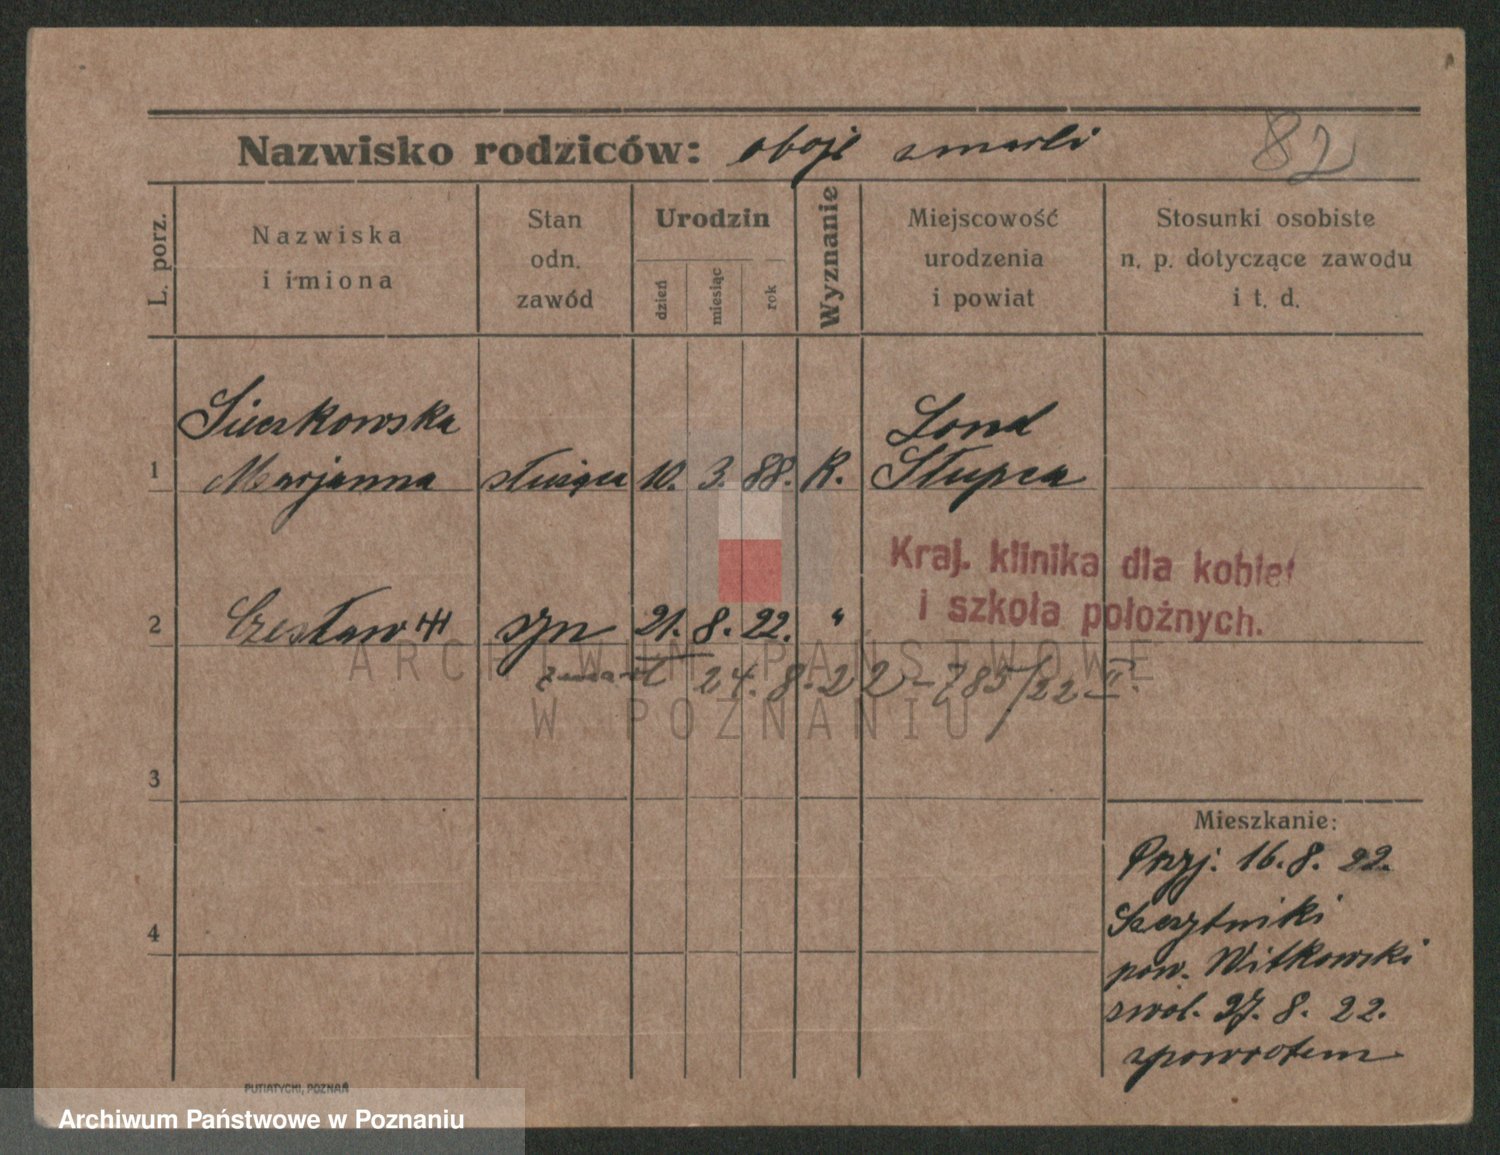 Nazwisko rodziców: oboje zmarli 82
L. porz.
Nazwiska
i imiona
Stan
odn.
zawód
Urodzin
dzień
miesiąc
rok
Wyznanie
Miejscowość
urodzenia
i powiat
Stosunki osobiste
n. p. dotyczące zawodu
i t. d.
Sieczkowska
Lond
1 Marjanna służąca 10. 3. 88. R. Słupca
Kraj. klinika dla kobiet
i szkoła położnych.
2 Czesław syn 21. 8. 22. "
zmarł 24.8.22 - 785/22 II.
ARCHIWUM PAŃSTWOWE
W POZNANIU
3
4
Mieszkanie:
Przyj. 16. 8. 22.
Szczytniki
pow. Witkowski
zwol. 27. 8. 22.
zpowrotem
PUTIATYCKI, POZNAŃ
Archiwum Państwowe w Poznaniu